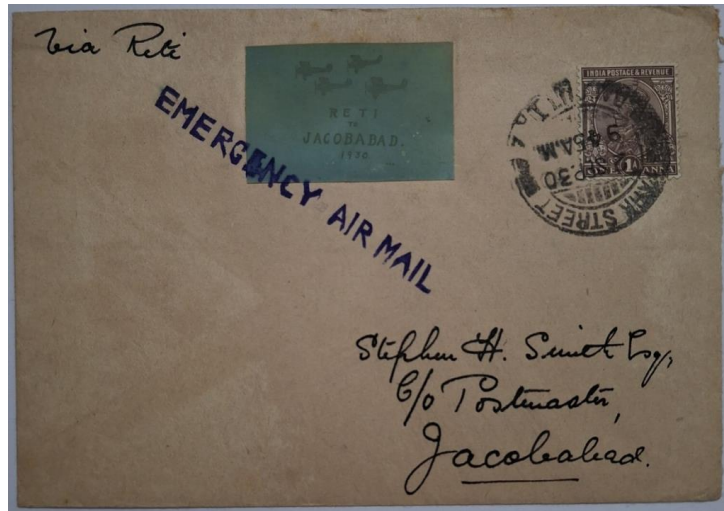 Via Reti
RETI
TO
JACOBABAD.
1930
EMERGENCY AIR MAIL
INDIA POSTAGE & REVENUE
1A
ANNA
PARK STREET
SEP.30
9 45A.M.
Stephen H. Smith Esq,
C/o Postmaster,
Jacobabad.